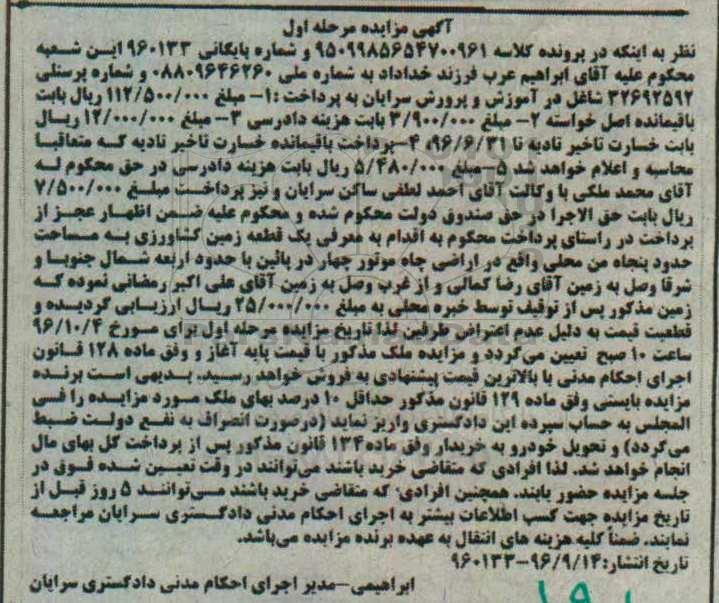 آگهی مزایده مرحله اول
نظر به اینکه در پرونده کلاسه ۹۵۰۹۹۸۵۶۵۴۷۰۰۹۶۱ و شماره بایگانی ۹۶۰۱۳۳ این شعبه
محکوم علیه آقای ابراهیم عرب فرزند خداداد به شماره ملی ۰۸۸۰۹۶۴۶۲۶۰ و شماره پرسنلی
۳۲۶۹۲۵۹۲ شاغل در آموزش و پرورش سرایان به پرداخت :۱- مبلغ ۱۱۲/۵۰۰/۰۰۰ ریال بابت
باقیمانده اصل خواسته ۲- مبلغ ۳/۹۰۰/۰۰۰ بابت هزینه دادرسی ۳- مبلغ ۱۲/۰۰۰/۰۰۰ ریال
بابت خسارت تاخیر تادیه تا ۹۶/۶/۳۱، ۴-پرداخت باقیمانده خسارت تاخیر تادیه که متعاقبا
محاسبه و اعلام خواهد شد ۵- مبلغ ۵/۴۸۰/۰۰۰ ریال بابت هزینه دادرسی در حق محکوم له
آقای محمد ملکی با وکالت آقای احمد لطفی ساکن سرایان و نیز پرداخت مبلغ ۷/۵۰۰/۰۰۰
ریال بابت حق الاجرا در حق صندوق دولت محکوم شده و محکوم علیه ضمن اظهار عجز از
پرداخت در راستای پرداخت محکوم به اقدام به معرفی یک قطعه زمین کشاورزی به مساحت
حدود پنجاه من محلی واقع در اراضی چاه موتور چهار در پائین با حدود اربعه شمال جنوبا و
شرقا وصل به زمین آقای رضا کمالی و از غرب وصل به زمین آقای علی اکبر رمضانی نموده که
زمین مذکور پس از توقیف توسط خبره محلی به مبلغ ۲۵/۰۰۰/۰۰۰ ریال ارزیابی گردیده و
قطعیت قیمت به دلیل عدم اعتراض طرفین لذا تاریخ مزایده مرحله اول برای مورخ ۹۶/۱۰/۴
ساعت ۱۰ صبح تعیین می‌گردد و مزایده ملک مذکور با قیمت پایه آغاز و وفق ماده ۱۲۸ قانون
اجرای احکام مدنی با بالاترین قیمت پیشنهادی به فروش خواهد رسید. بدیهی است برنده
مزایده بایستی وفق ماده ۱۲۹ قانون مذکور حداقل ۱۰ درصد بهای ملک مورد مزایده را فی
المجلس به حساب سپرده این دادگستری واریز نماید (درصورت انصراف به نفع دولت ضبط
می‌گردد) و تحویل خودرو به خریدار وفق ماده۱۳۴ قانون مذکور پس از پرداخت کل بهای مال
انجام خواهد شد. لذا افرادی که متقاضی خرید باشند می‌توانند در وقت تعیین شده فوق در
جلسه مزایده حضور یابند. همچنین افرادی که متقاضی خرید باشند می‌توانند ۵ روز قبل از
تاریخ مزایده جهت کسب اطلاعات بیشتر به اجرای احکام مدنی دادگستری سرایان مراجعه
نمایند. ضمناً کلیه هزینه های انتقال به عهده برنده مزایده می‌باشد.
تاریخ انتشار:۹۶/۹/۱۴-۹۶۰۱۳۳
ابراهیمی-مدیر اجرای احکام مدنی دادگستری سرایان